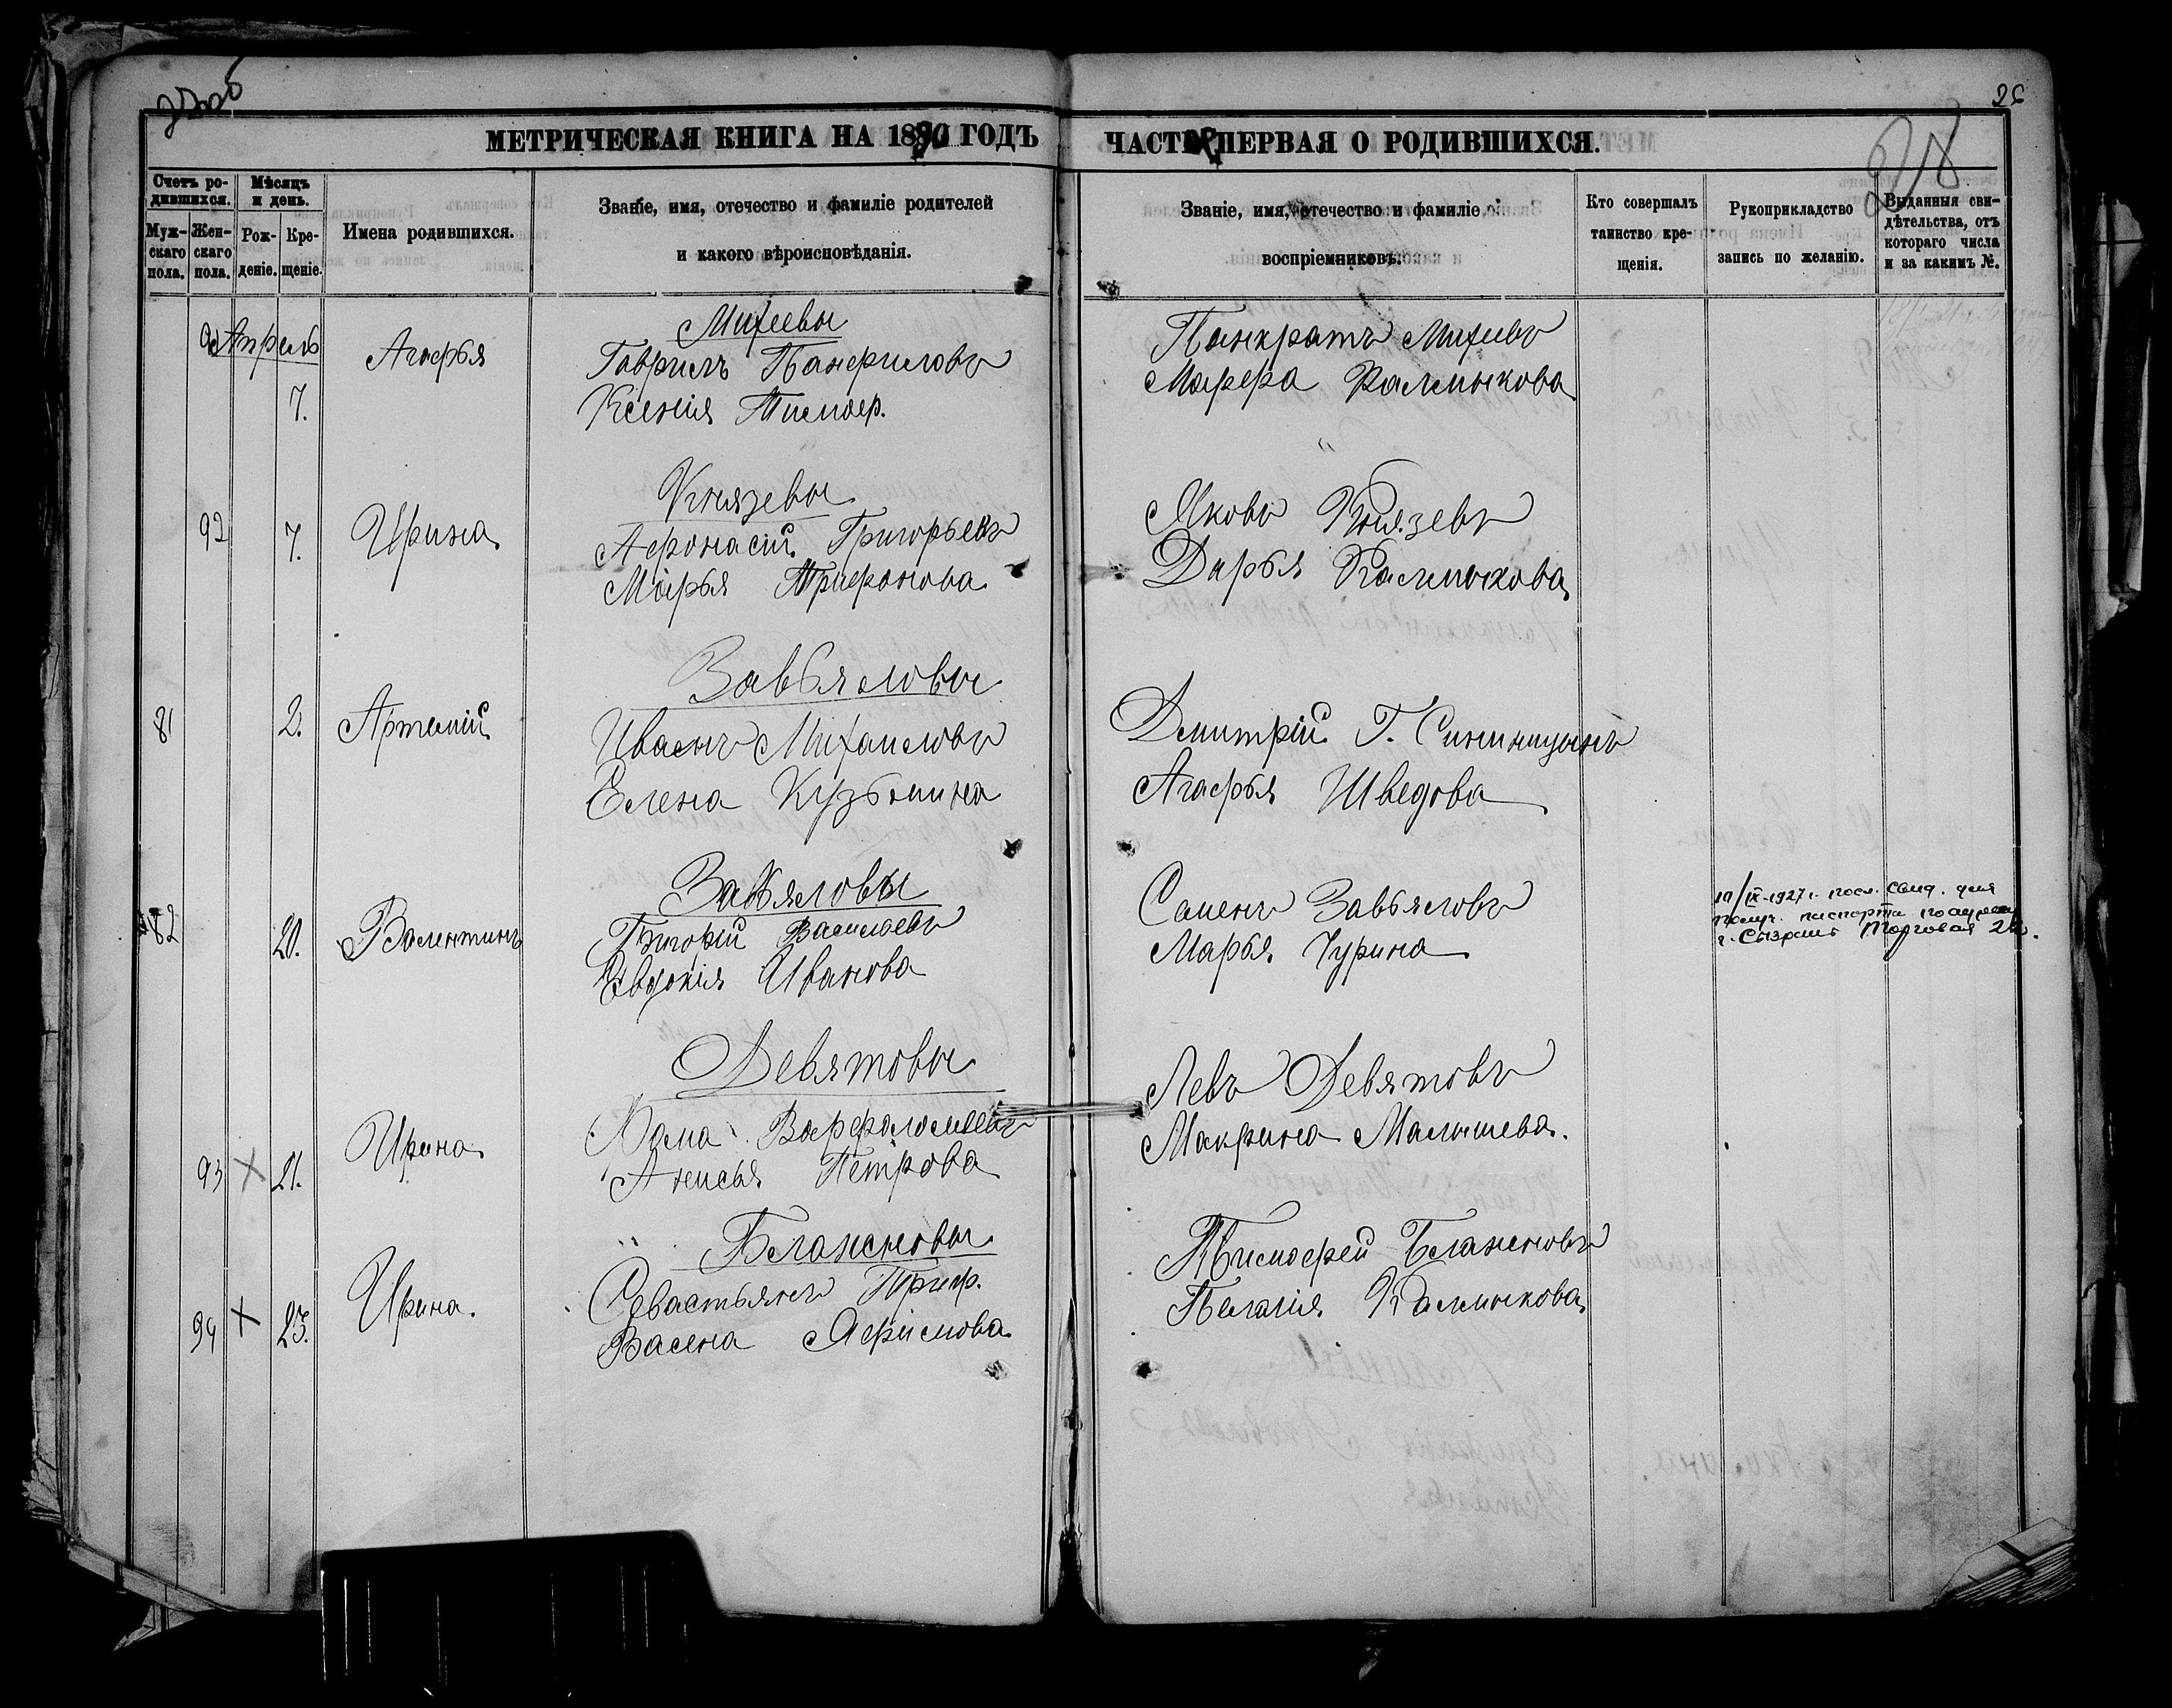 26
МЕТРИЧЕСКАЯ КНИГА НА 1890 ГОДЪ
ЧАСТЬ ПЕРВАЯ О РОДИВШИХСЯ.
Счетъ ро-
дившихся.
Мѣсяцъ
и день.
Муж-
скаго
пола.
Жен-
скаго
пола.
Рож-
деніе.
Кре-
щеніе.
Имена родившихся.
Званіе, имя, отечество и фамиліе родителей
и какого вѣроисповѣданія.
Званіе, имя, отечество и фамиліе
воспріемниковъ.
Кто совершалъ
таинство кре-
щенія.
Рукоприкладство
запись по желанію.
Выданныя сви-
дѣтельства, отъ
котораго числа
и за какимъ №.
Апрель
7.
Агафья
Михеевы
Гаврилъ Панфиловъ
Ксенія Тимоф.
Панкратъ Михеевъ
Марфа Калмыкова
92
7.
Ирина
Князевы
Афонасій Григорьевъ
Марья Трифонова
Яковъ Князевъ
Дарья Калмыкова
81
2.
Артемій
Завьяловы
Иванъ Михаиловъ
Елена Кузьмина
Дмитрій Г. Синицынъ
Агафья Шведова
82
20.
Валентинъ
Завьяловы
Григорій Васильевъ
Евдокія Иванова
Семенъ Завьяловъ
Марья Чурина
10/IX-1927 г. посл. свид. для
получ. паспорта по адресу
г. Сызрань Торговая
93
21.
Ирина
Девятовы
Фома Варфоломеевъ
Анисья Петрова
Левъ Девятовъ
Макрина Малышева.
94
23.
Ирина.
Блаженовы
Севастьянъ Триф.
Васена Ефимова
Тимофей Блаженовъ
Пелагія Калмыкова